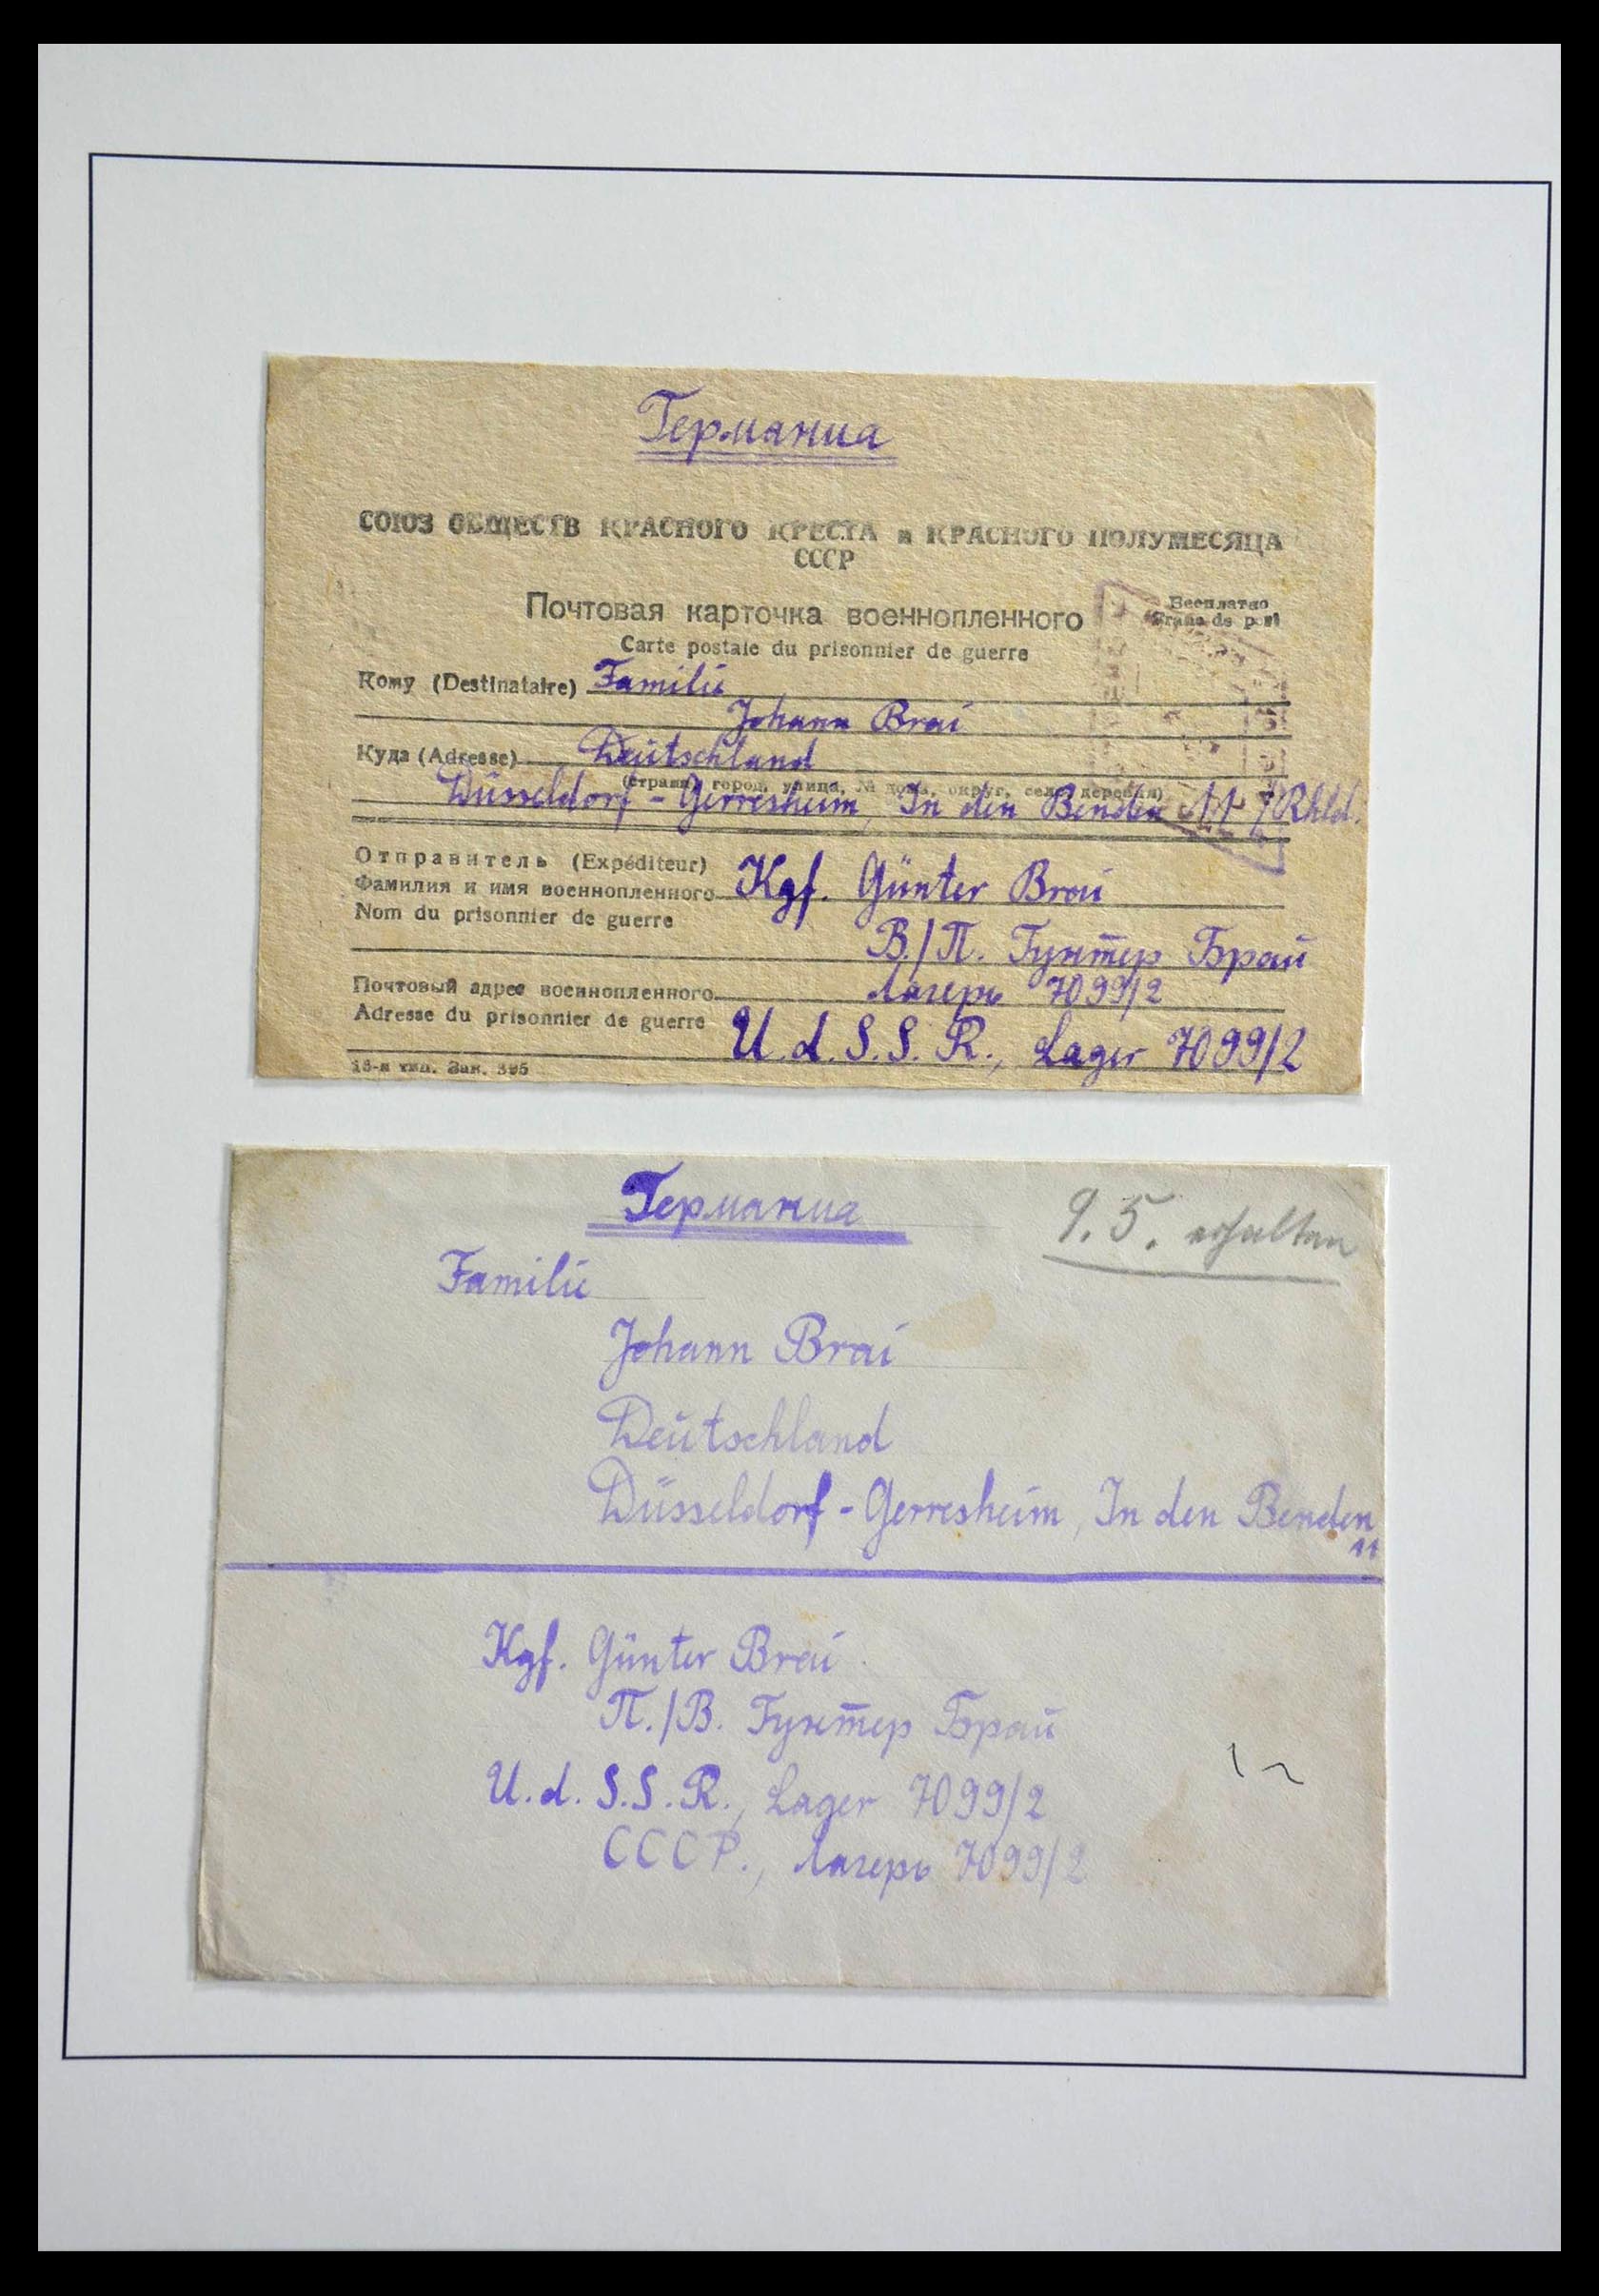 Германиа
СОЮЗ ОБЩЕСТВ КРАСНОГО КРЕСТА и КРАСНОГО ПОЛУМЕСЯЦА
СССР
Почтовая карточка военнопленного
Бесплатно
Carte postale du prisonnier de guerre
Franc de port
Кому (Destinataire) Familie
Johann Brai
Куда (Adresse) Deutschland
(страна, город, улица, № дома, округ, село, деревня)
Düsseldorf - Gerresheim, In den Benden 11 / Rhld.
Отправитель (Expéditeur)
Фамилия и имя военнопленного Kgf. Günter Brai
Nom du prisonnier de guerre
В./П. Гунтер Брай
Почтовый адрес военнопленного Лагерь 7099/2
Adresse du prisonnier de guerre U.d.S.S.R., Lager 7099/2
16-я тип. Зак. 395
Германиа
9.5. erhalten
Familie
Johann Brai
Deutschland
Düsseldorf - Gerresheim, In den Benden
11
Kgf. Günter Brai
П./В. Гунтер Брай
U.d.S.S.R., Lager 7099/2
СССР., Лагерь 7099/2